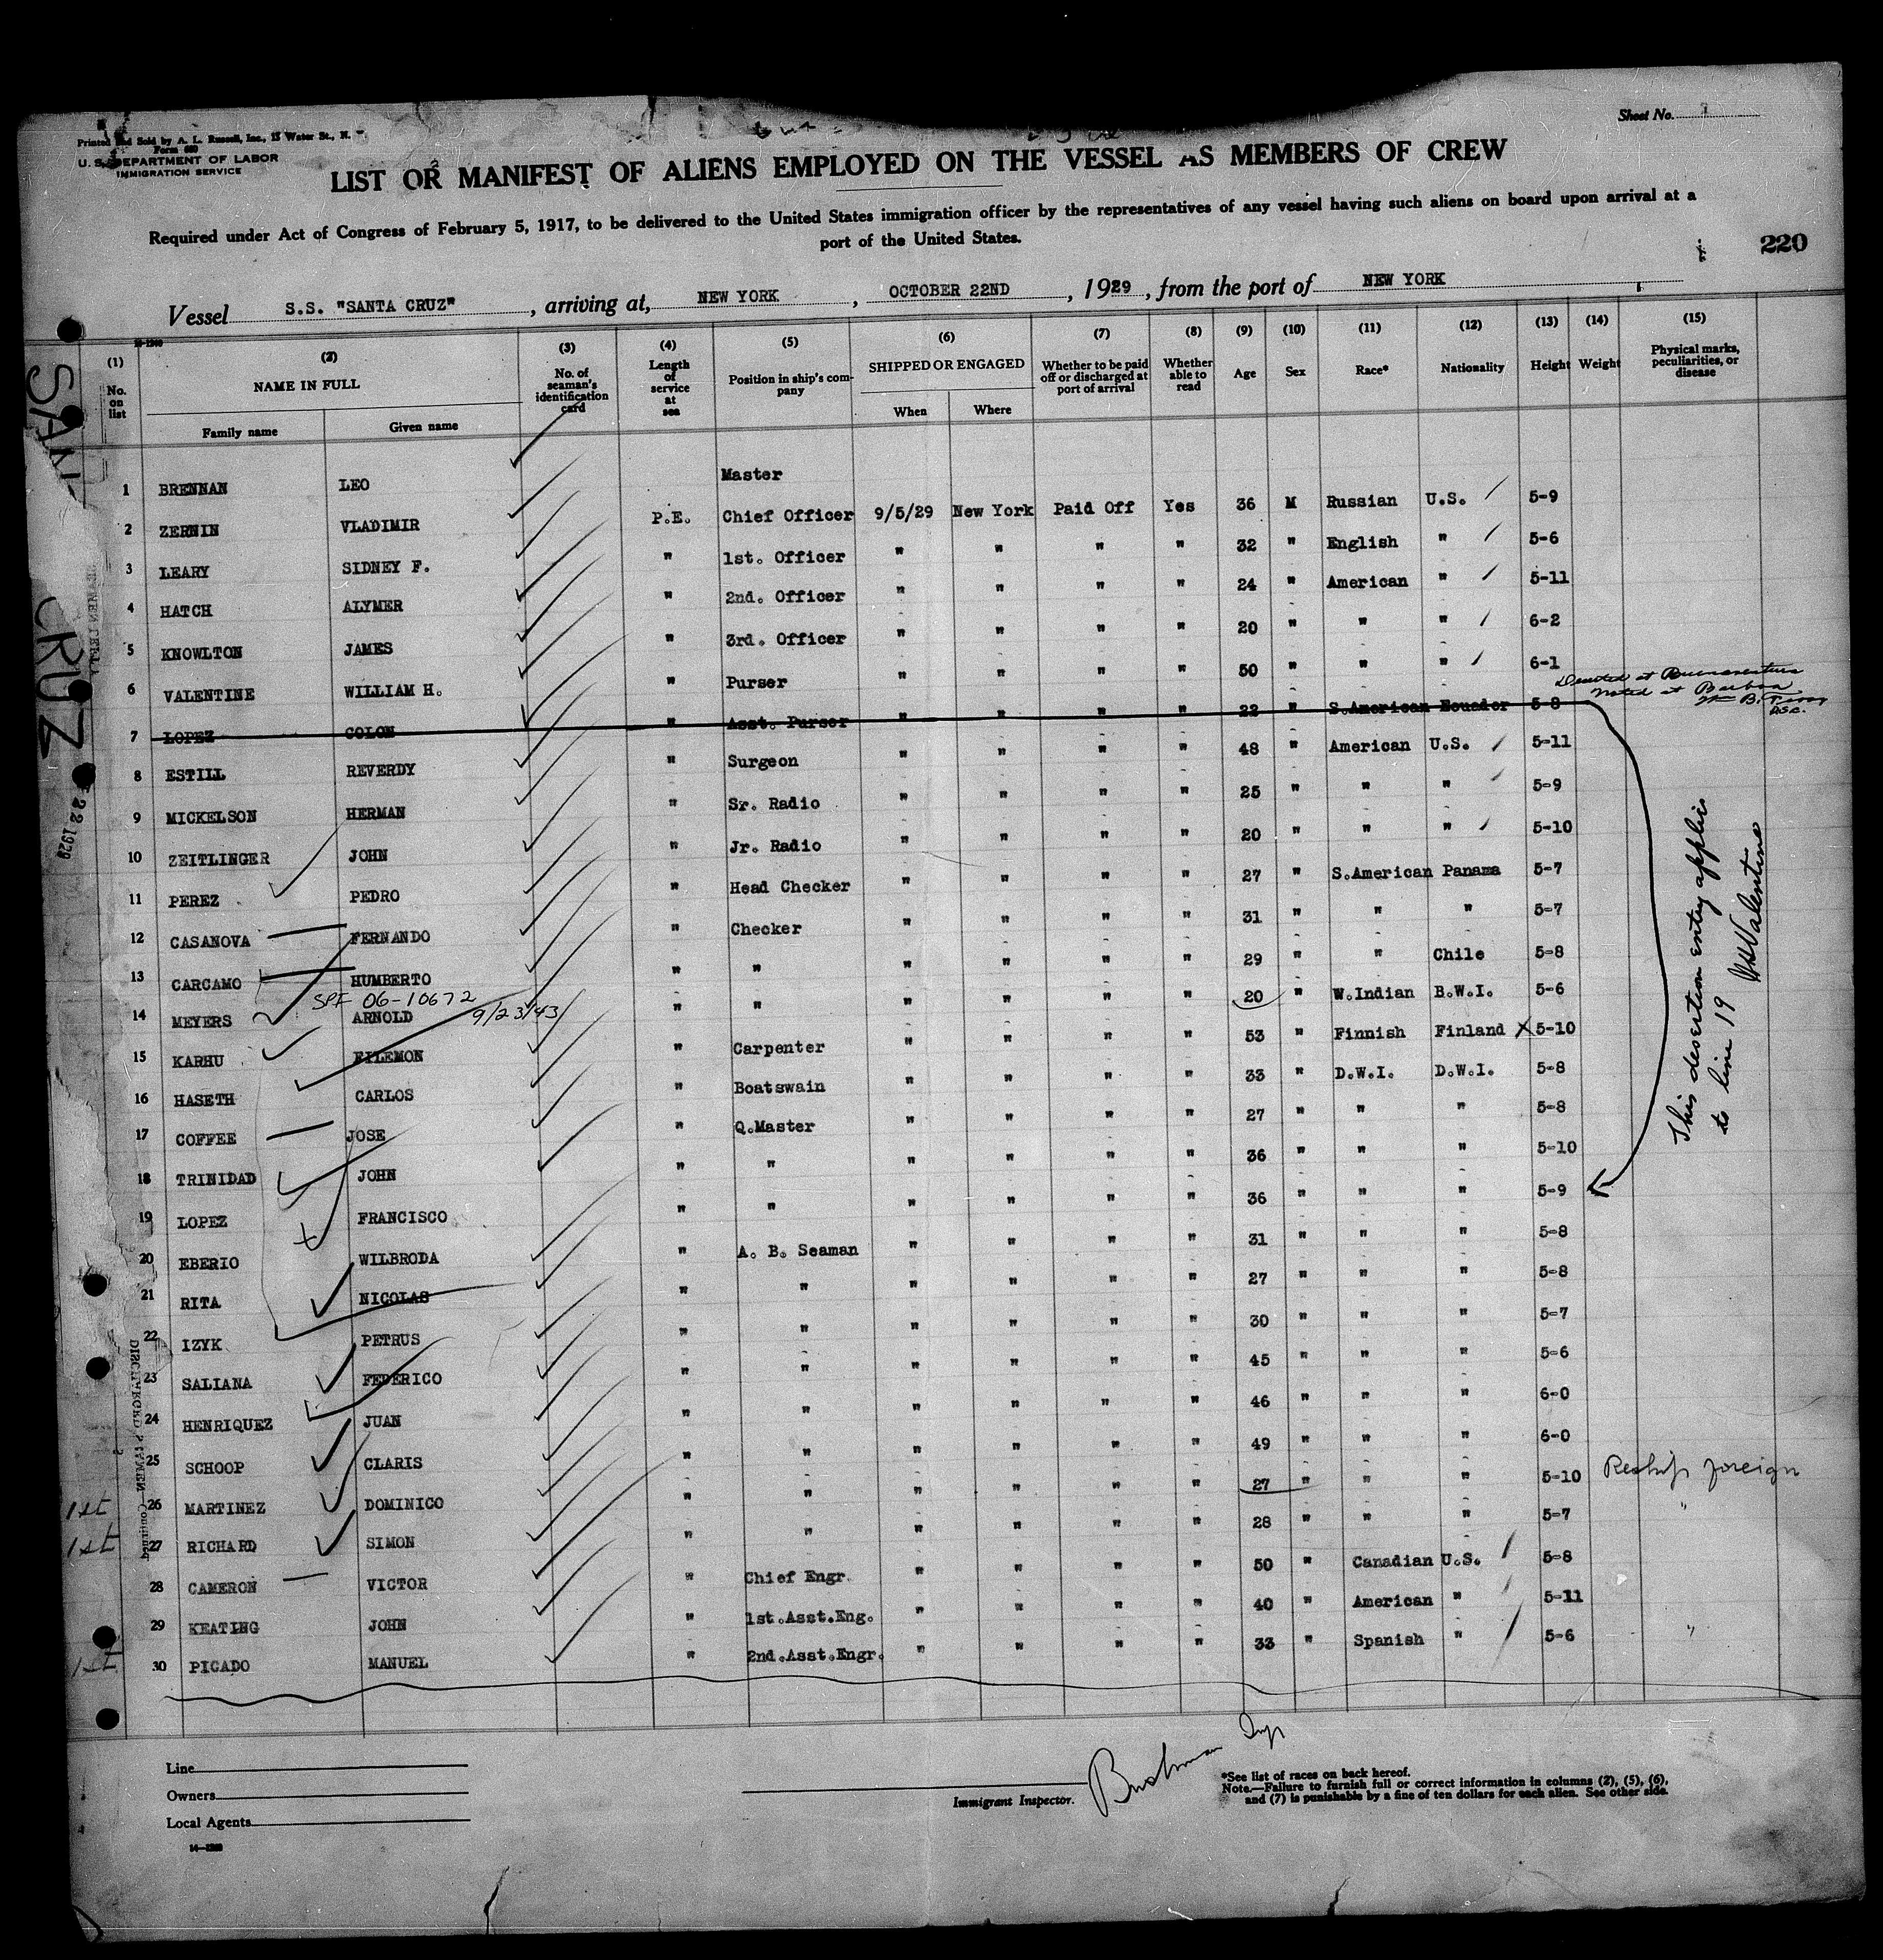 Sheet No.
Printed and Sold by A. L. Russell, Inc., 15 Water St., N.
Form 680
U. S. DEPARTMENT OF LABOR
IMMIGRATION SERVICE
LIST OR MANIFEST OF ALIENS EMPLOYED ON THE VESSEL AS MEMBERS OF CREW
Required under Act of Congress of February 5, 1917, to be delivered to the United States immigration officer by the representatives of any vessel having such aliens on board upon arrival at a
port of the United States.
220
Vessel S.S. "SANTA CRUZ", arriving at, NEW YORK, OCTOBER 22ND, 1929, from the port of NEW YORK
(1) No. on list
(2) NAME IN FULL Family name Given name
(3) No. of seaman's identification card
(4) Length of service at sea
(5) Position in ship's company
(6) SHIPPED OR ENGAGED When Where
(7) Whether to be paid off or discharged at port of arrival
(8) Whether able to read
(9) Age
(10) Sex
(11) Race*
(12) Nationality
(13) Height
(14) Weight
(15) Physical marks, peculiarities, or disease
1 BRENNAN LEO Master
2 ZERNIN VLADIMIR P.E. Chief Officer 9/5/29 New York Paid Off Yes 36 M Russian U.S. 5-9
3 LEARY SIDNEY F. " 1st. Officer " " " " 32 " English " 5-6
4 HATCH ALYMER " 2nd. Officer " " " " 24 " American " 5-11
5 KNOWLTON JAMES " 3rd. Officer " " " " 20 " " " 6-2
6 VALENTINE WILLIAM H. " Purser " " " " 50 " " " 6-1
Deserted at Buenaventura
noted at Balboa
7 LOPEZ COLON " Asst. Purser " " " " 22 " S.American Ecuador 5-8
8 ESTILL REVERDY " Surgeon " " " " 48 " American U.S. 5-11
9 MICKELSON HERMAN " Sr. Radio " " " " 25 " " " 5-9
10 ZEITLINGER JOHN " Jr. Radio " " " " 20 " " " 5-10
11 PEREZ PEDRO " Head Checker " " " " 27 " S.American Panama 5-7
12 CASANOVA FERNANDO " Checker " " " " 31 " " " 5-7
13 CARCAMO HUMBERTO " " " " " " 29 " " Chile 5-8
SPF 06-10672 9/23/43
14 MEYERS ARNOLD " " " " " " 20 " W.Indian B.W.I. 5-6
15 KARHU FILEMON " Carpenter " " " " 53 " Finnish Finland X 5-10
16 HASETH CARLOS " Boatswain " " " " 33 " D.W.I. D.W.I. 5-8
17 COFFEE JOSE " Q.Master " " " " 27 " " " 5-8
18 TRINIDAD JOHN " " " " " " 36 " " " 5-10
19 LOPEZ FRANCISCO " " " " " " 36 " " " 5-9
20 EBERIO WILBRODA " A. B. Seaman " " " " 31 " " " 5-8
21 RITA NICOLAS " " " " " " 27 " " " 5-8
22 IZYK PETRUS " " " " " " 30 " " " 5-7
23 SALIANA FEDERICO " " " " " " 45 " " " 5-6
24 HENRIQUEZ JUAN " " " " " " 46 " " " 6-0
25 SCHOOP CLARIS " " " " " " 49 " " " 6-0
1st 26 MARTINEZ DOMINICO " " " " " " 27 " " " 5-10 Reship foreign
1st 27 RICHARD SIMON " " " " " " 28 " " " 5-7 "
28 CAMERON VICTOR " Chief Engr. " " " " 50 " Canadian U.S. 5-8
29 KEATING JOHN " 1st.Asst.Eng. " " " " 40 " American " 5-11
1st 30 PICADO MANUEL " 2nd.Asst.Engr. " " " " 33 " Spanish " 5-6 "
This desertion entry applies
to line 19
WH Valentine
SANTA CRUZ
22 1929
DISCHARGED SEAMEN—Continued
Line
Owners
Local Agents
Immigrant Inspector.
Bushman Insp
*See list of races on back hereof.
Note.—Failure to furnish full or correct information in columns (2), (5), (6),
and (7) is punishable by a fine of ten dollars for each alien. See other side.
14—1240